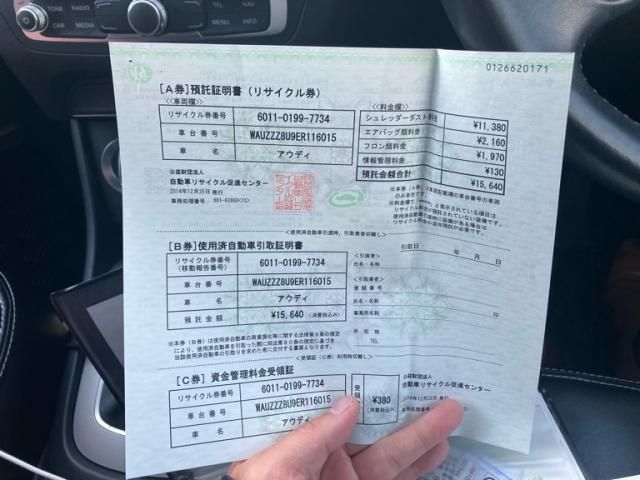 TONE
CAR
MEDIA
TEL
NAV
MENU
INFO
0126620171
[A券]預託証明書(リサイクル券)
<<車両欄>>
リサイクル券番号 6011-0199-7734
車台番号 WAUZZZ8U9ER116015
車名 アウディ
公益財団法人
自動車リサイクル促進センター
2014年12月25日 発行
<<料金欄>>
シュレッダーダスト料金 ¥11,380
エアバッグ類料金 ¥2,160
フロン類料金 ¥1,970
情報管理料金 ¥130
預託金額合計 ¥15,640
<使用済自動車引渡時、引取業者切離し>
[B券]使用済自動車引取証明書
リサイクル券番号
(移動報告番号) 6011-0199-7734
車台番号 WAUZZZ8U9ER116015
車名 アウディ
預託金額 ¥15,640 (消費税込み)
引取日: 年 月 日
<引渡者>
氏名・名称:
<引取業者>
登録番号
氏名・名称: 印
事業所名
所在地
TEL
※本券(B券)は使用済自動車の再資源化等に関する法律第9条の規定
<受領証(C券)利用時切離し>
[C券] 資金管理料金受領証
リサイクル券番号 6011-0199-7734
車台番号 WAUZZZ8U9ER116015
車名 アウディ
¥380
(消費税込み)
公益財団法人
自動車リサイクル促進センター